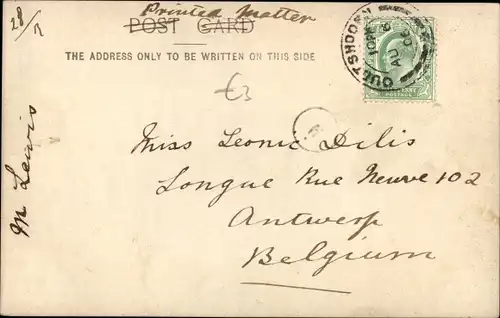 Printed Matter
28/7
POST CARD
THE ADDRESS ONLY TO BE WRITTEN ON THIS SIDE
OUDTSHOORN
AU 6
06
POSTAGE
£3
Miss Leonie Dilis
Longue Rue Neuve 102
Antwerp
Belgium
M Lewis